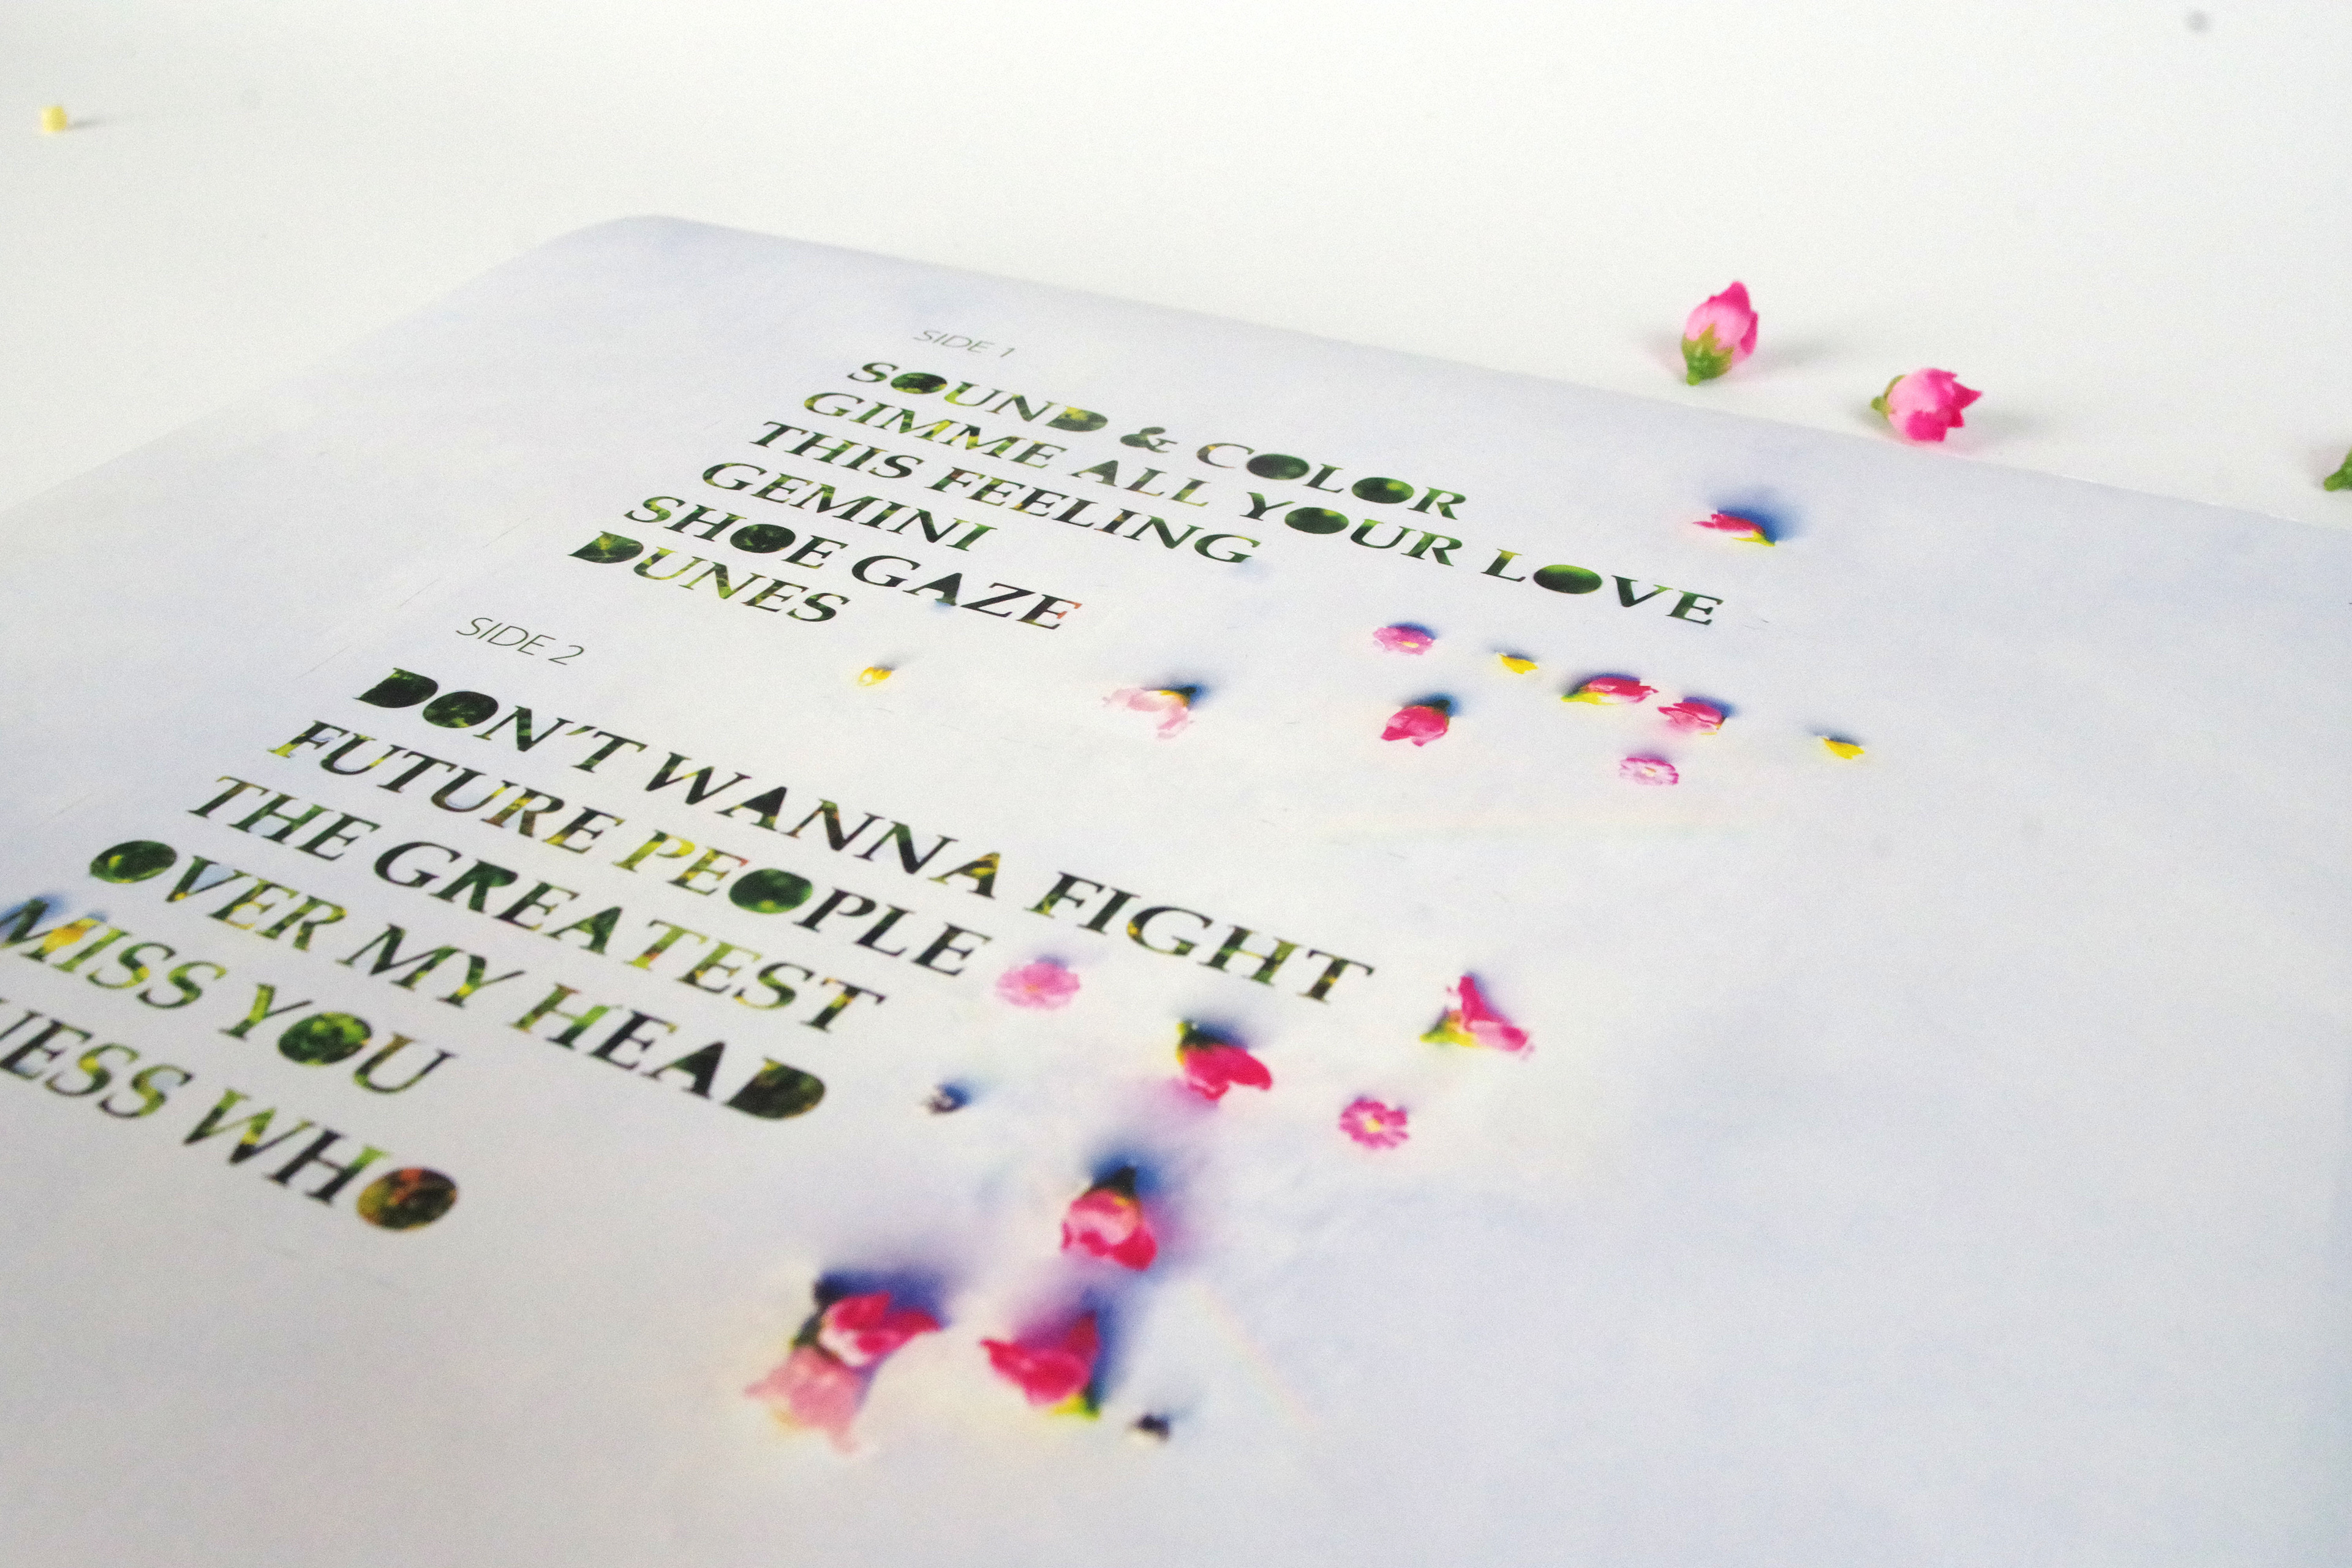 SIDE 1
SOUND & COLOR
GIMME ALL YOUR LOVE
THIS FEELING
GEMINI
SHOE GAZE
DUNES
SIDE 2
DON'T WANNA FIGHT
FUTURE PEOPLE
THE GREATEST
OVER MY HEAD
MISS YOU
UESS WHO